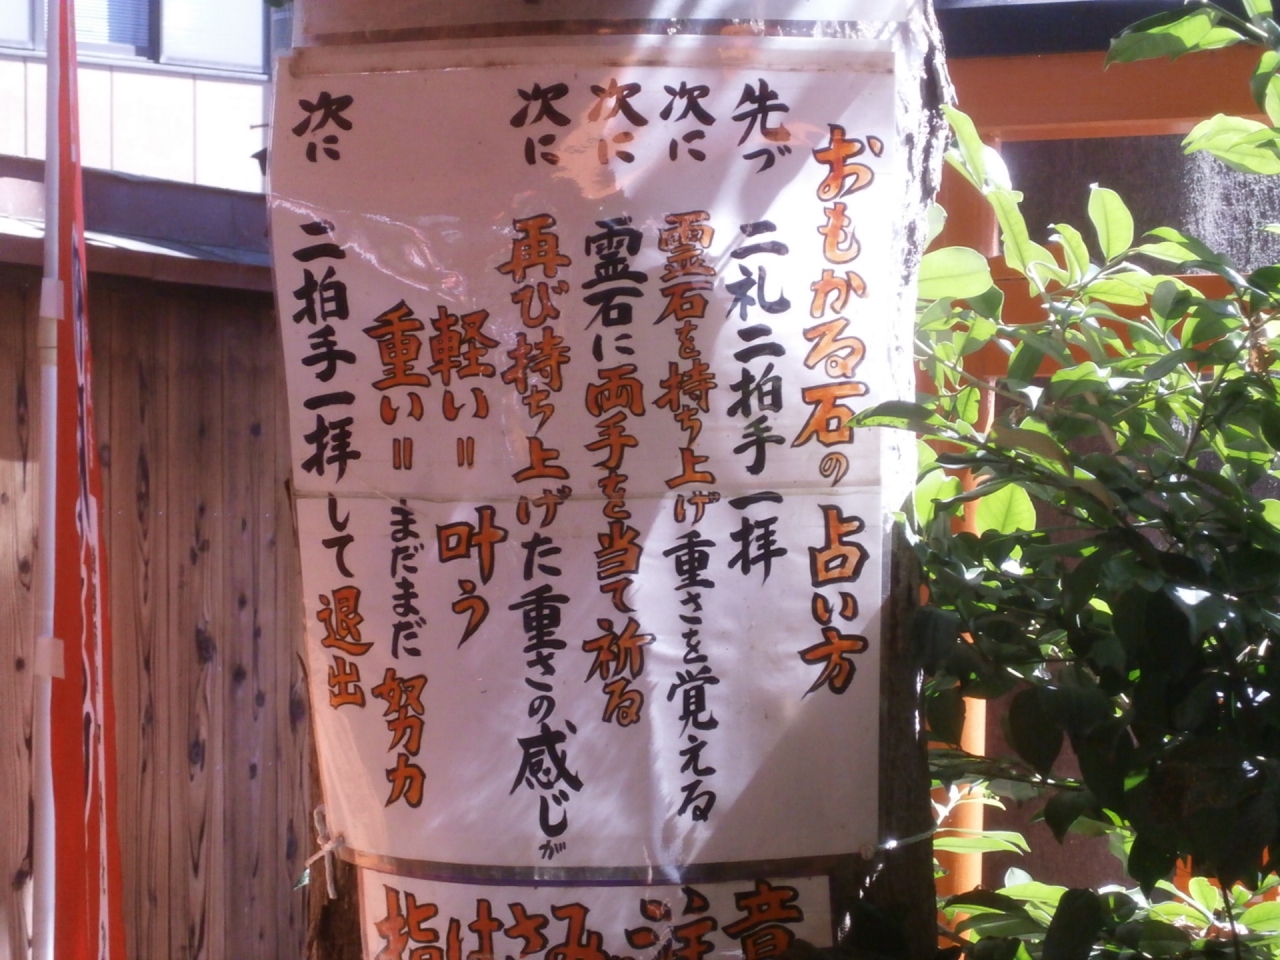 おもかる石の占い方
先づ 二礼二拍手一拝
次に 霊石を持ち上げ重さを覚える
次に 霊石に両手を当て祈る
次に 再び持ち上げた重さの感じが
軽い=叶う
重い=まだまだ努力
次に 二拍手一拝して退出
指はさみ注意